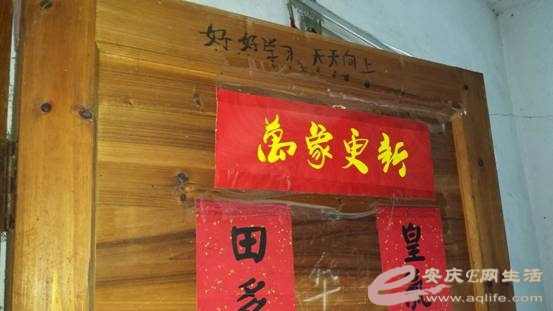 好好学习 天天向上
萬象更新
田多
皇
华
安庆E网生活
www.aqlife.com